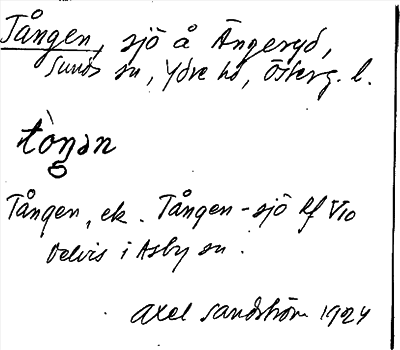 Tången, sjö å Ängeryd,
Sunds sn, Ydre hd, Österg. l.
tòŋən
Tången, ek. Tången-sjö Rf V10
Delvis i Asby sn.
Axel Sandström 1924